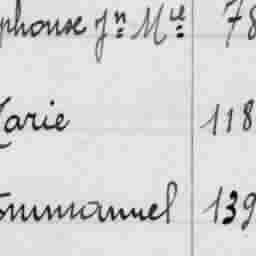 phonse Jn Mie 78
Marie 118
Emmanuel 139